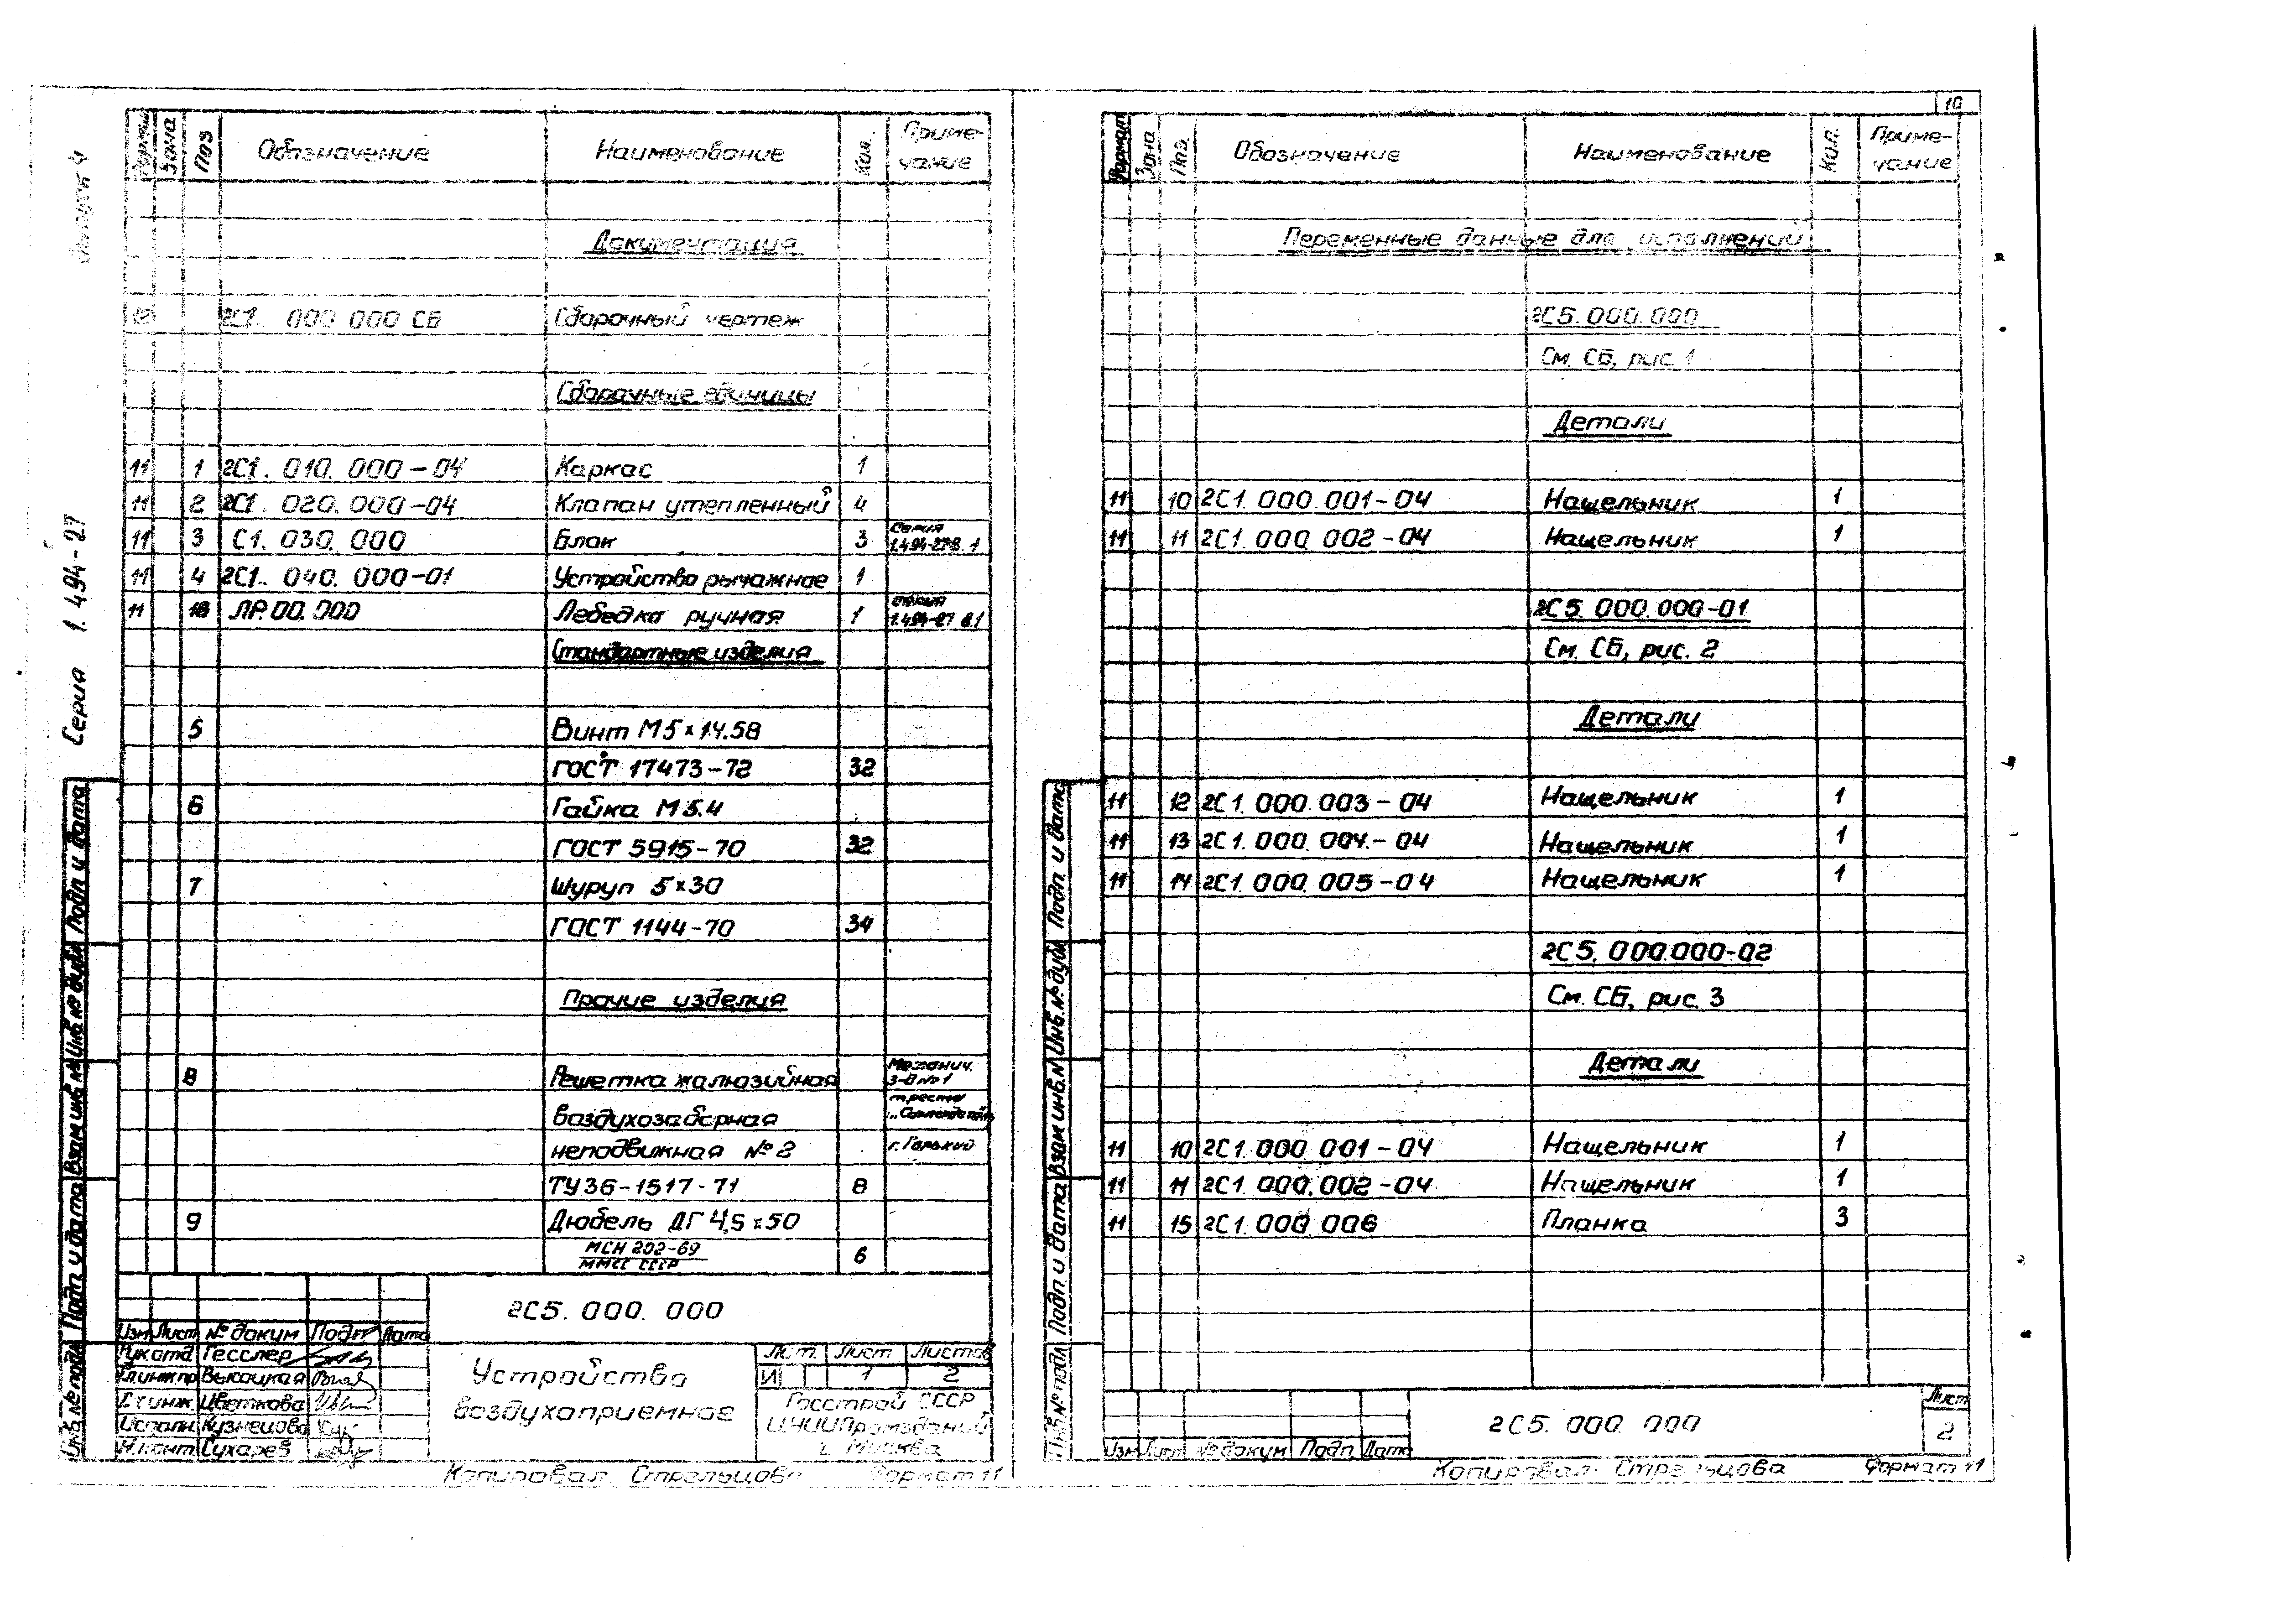 10
Выпуск 4
Серия 1.494-27
Формат Зона Поз Обозначение Наименование Кол. Приме-
чание
Документация
12 2С1. 000 000 СБ Сборочный чертеж
Сборочные единицы
11 1 2С1. 010. 000-04 Каркас 1
11 2 2С1. 020. 000-04 Клапан утепленный 4
11 3 С1. 030. 000 Блок 3 Серия
1.494-27 в. 1
11 4 2С1. 040. 000-01 Устройство рычажное 1
11 16 ЛР.00.000 Лебедка ручная 1 серия
1.494-27 в.1
Стандартные изделия
5 Винт М5х14.58
ГОСТ 17473-72 32
6 Гайка М5.4
ГОСТ 5915-70 32
7 Шуруп 5х30
ГОСТ 1144-70 34
Прочие изделия
8 Решетка жалюзийная Механич.
з-д №1
воздухозаборная треста
неподвижная №2 г. Горький
ТУ36-1517-71 8
9 Дюбель ДГ 4,5х50
МСН 202-69
ММСС СССР 6
2С5. 000. 000
Изм Лист № докум Подп Дата
Рук отд Гесслер
Гл инж пр Высоцкая
Ст инж Цветкова
Исполн Кузнецова
Н.конт Сухарев
Устройство
воздухоприемное
Лит. Лист Листов
И 1 2
Госстрой СССР
ЦНИИПромзданий
г. Москва
Копировал. Стрельцова Формат 11
Инв № подл Подп и дата Взам инв № Инв № дубл Подп и дата
Формат Зона Поз. Обозначение Наименование Кол. Приме-
чание
Переменные данные для исполнений
2С5. 000. 000
См. СБ, рис. 1
Детали
11 10 2С1. 000. 001-04 Нащельник 1
11 11 2С1. 000. 002-04 Нащельник 1
2С5. 000. 000-01
См. СБ, рис. 2
Детали
11 12 2С1. 000. 003-04 Нащельник 1
11 13 2С1. 000. 004-04 Нащельник 1
11 14 2С1. 000. 005-04 Нащельник 1
2С5. 000.000-02
См. СБ, рис. 3
Детали
11 10 2С1. 000 001-04 Нащельник 1
11 11 2С1. 000. 002-04 Нащельник 1
11 15 2С1. 000 006 Планка 3
2С5. 000. 000
Лист
2
Изм Лист № докум Подп. Дата
Копировал: Стрельцова Формат 11
Инв № подл Подп. и дата Взам инв. № Инв. № дубл Подп. и дата